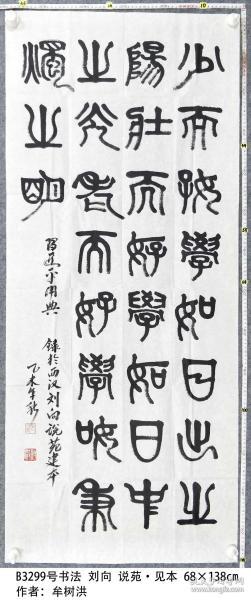 少而好學如日出之
陽壯而好學如日中
之光老而好學如秉
燭之明
習近平用典 錄於西汉刘向说苑建本
乙未年秋
B3299号书法 刘向 说苑·见本 68×138cm
作者：牟树洪